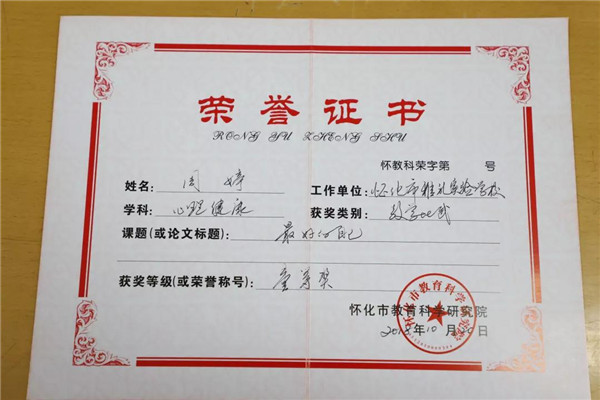 荣誉证书
RONG YU ZHENG SHU
怀教科荣字第 号
姓名: 周婷 工作单位: 怀化市雅礼实验学校
学科: 心理健康 获奖类别: 教学比武
课题(或论文标题): 最好的自己
获奖等级(或荣誉称号): 壹等奖
怀化市教育科学研究院
2018年10月 日